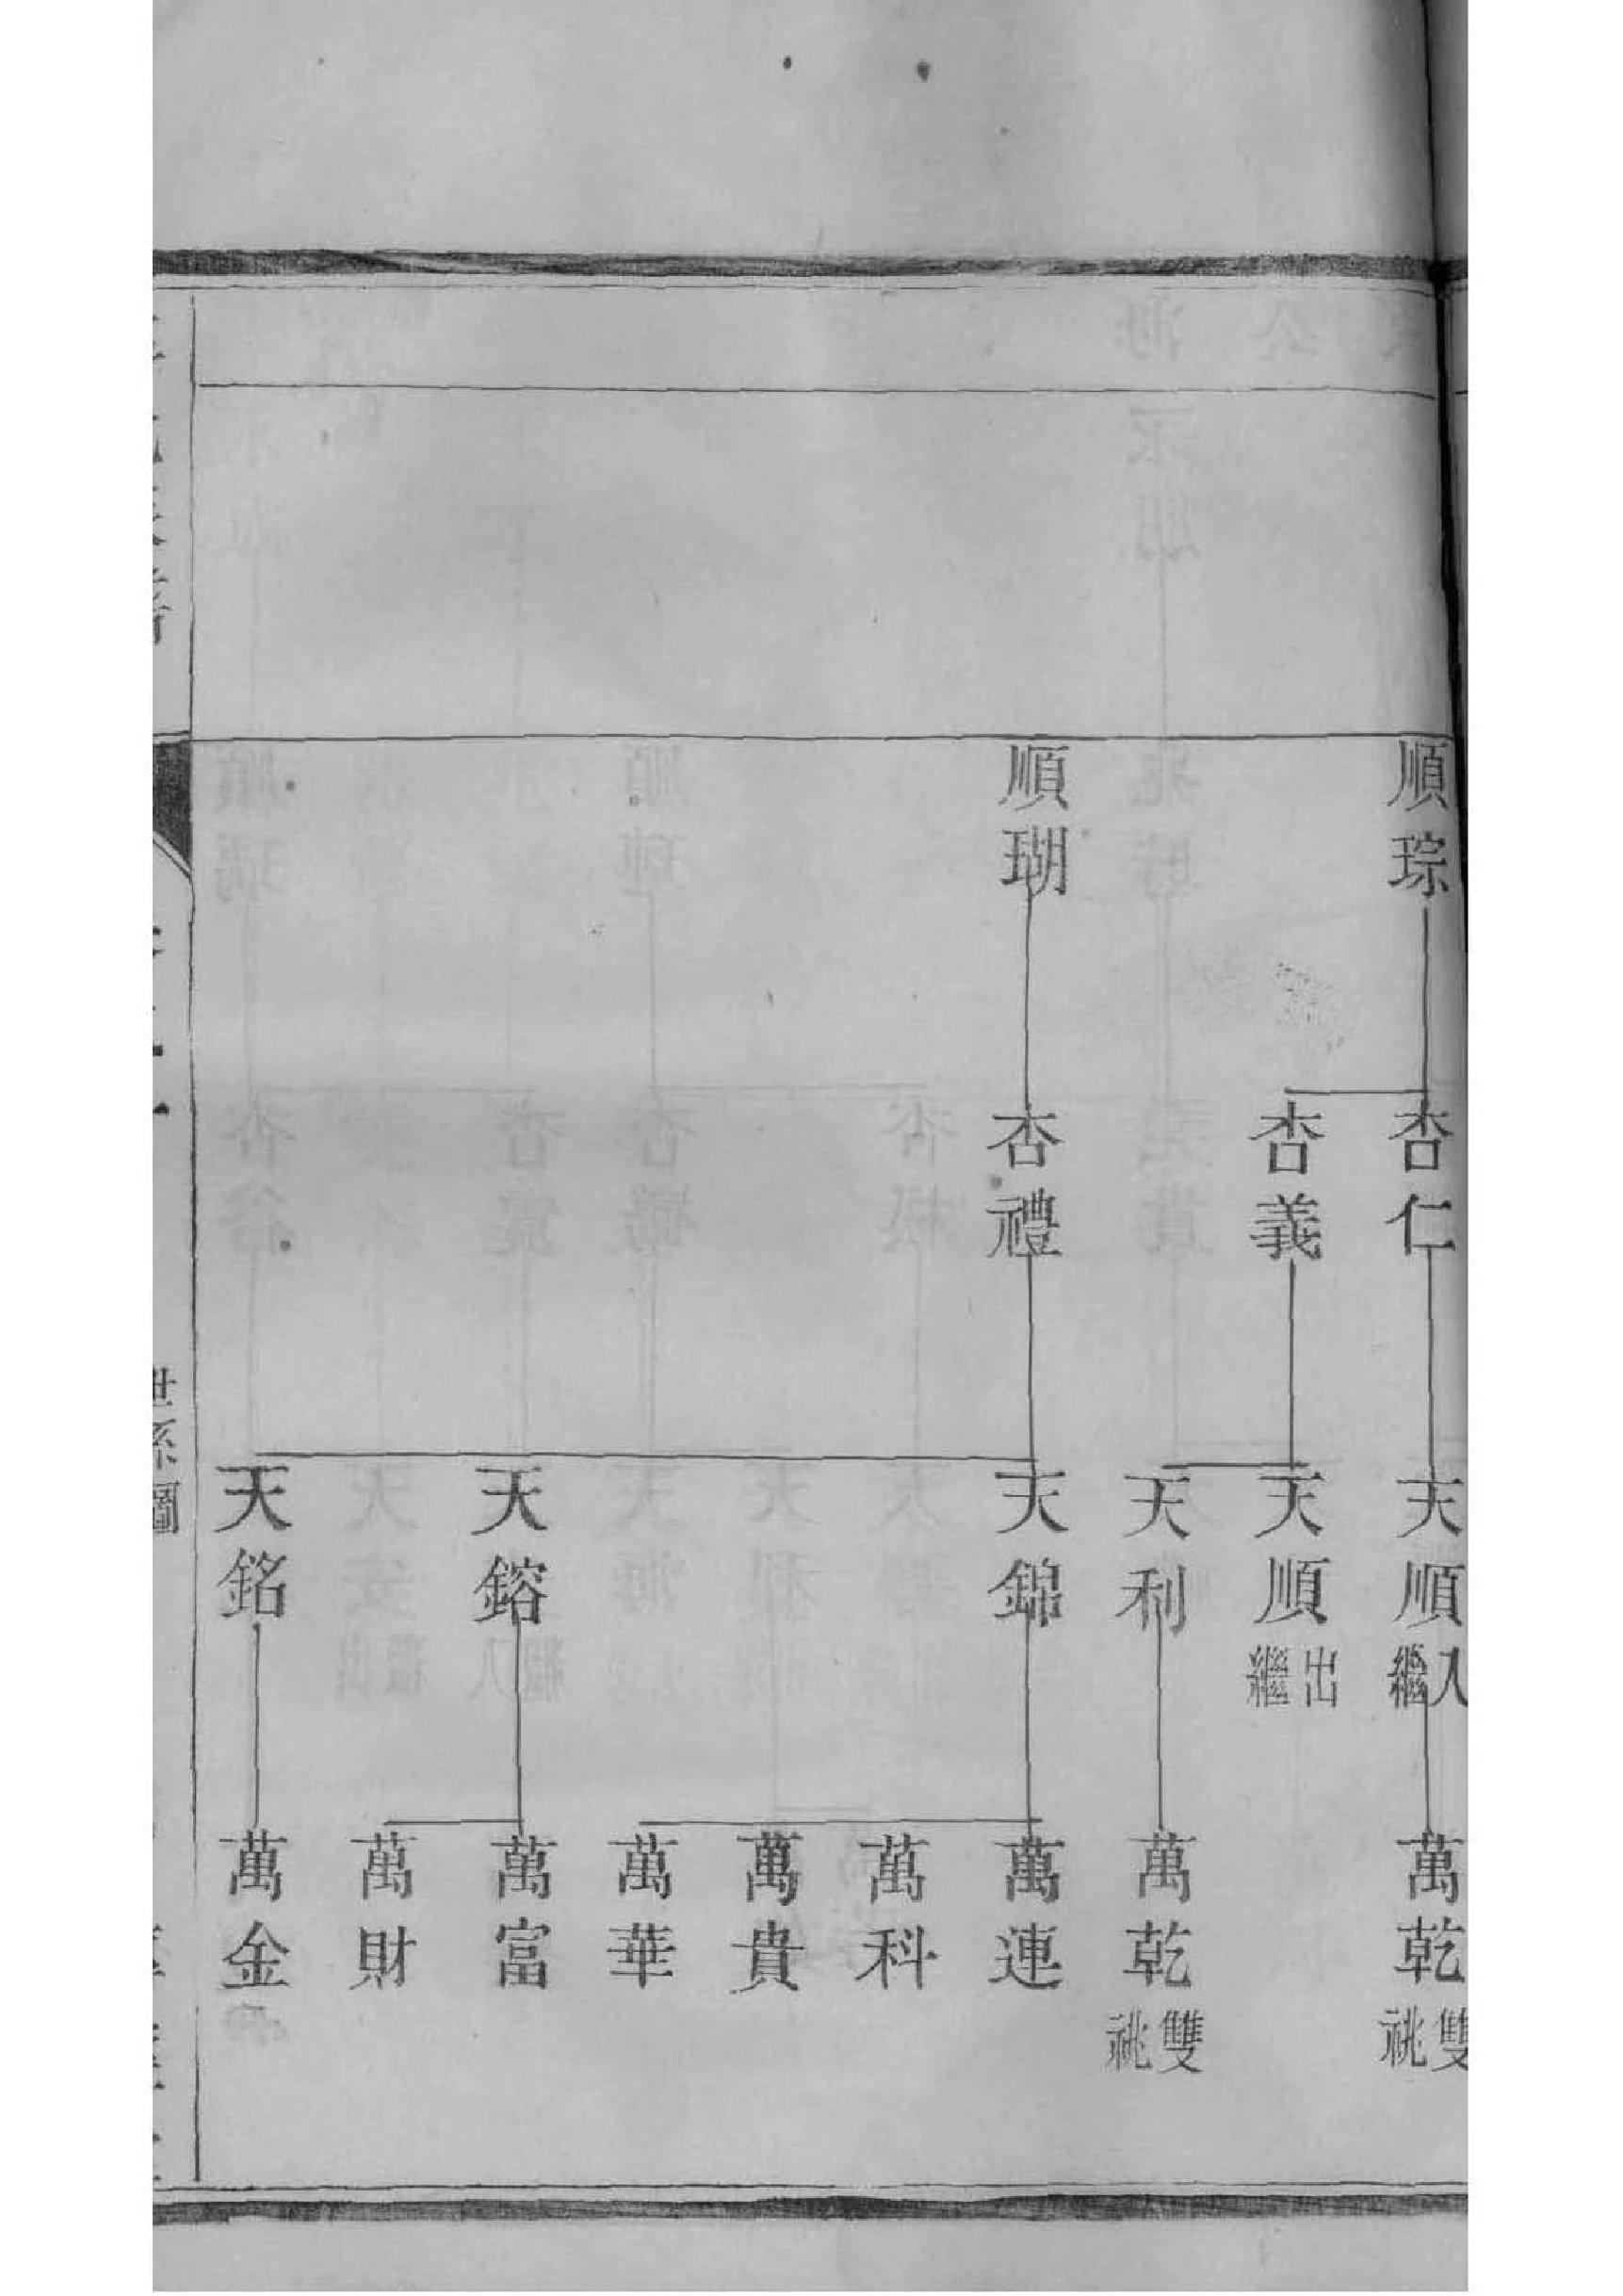 順琮
順瑚
杏仁
杏義
杏禮
天順入繼
天順出繼
天利
天錦
天鎔
天銘
萬乾雙祧
萬乾雙祧
萬連
萬科
萬貴
萬華
萬富
萬財
萬金
世系圖